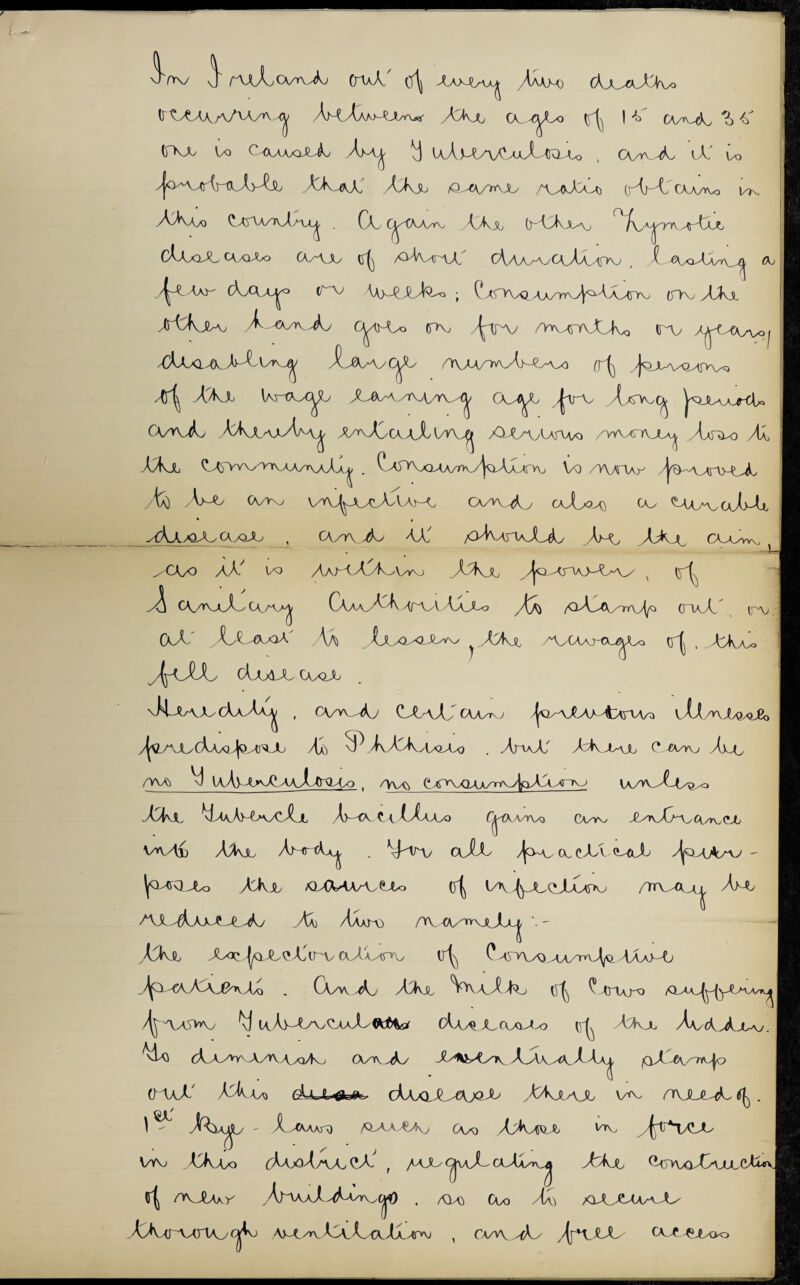 In Ireland out of every two deaths
occurring between the ages of 15 and 35
one is caused by Tuberculosis, and it is
probable that the same ratio obtains in
this country. Again the other Zymotic
diseases are of short duration, lasting a
few days or weeks; Consumption on the
other hand goes on for months or years,
disabling large numbers of persons
of the wage earning age for long periods
and thereby entailing serious money loss to
the community. Consumption is now proved
to be an infective and also a curable
disease, and it should be the aim,
as it is within the power, of
Sanitary Authorities to stamp out, or
at least to lessen, the ravages of, this
fell disease.
Heredity, and certain previous illnesses
predispose to Phthisis. but there can be
no Tuberculosis, no consumption unless
the Tubercle bacillus gains an entrance
into the body. For all practical pur-
poses the sources of infection may be
reduced to two namely:-
the expectoration of Consumptive
patients. And the milk of Cows suffering
from Tuberculous disease of the udder.
To diminish and eventually stamp
out this disease there is need of.
1st Bye-laws such as those in force
in this district, regulating the construction
of new buildings. so as to secure
thorough ventilation, and free access